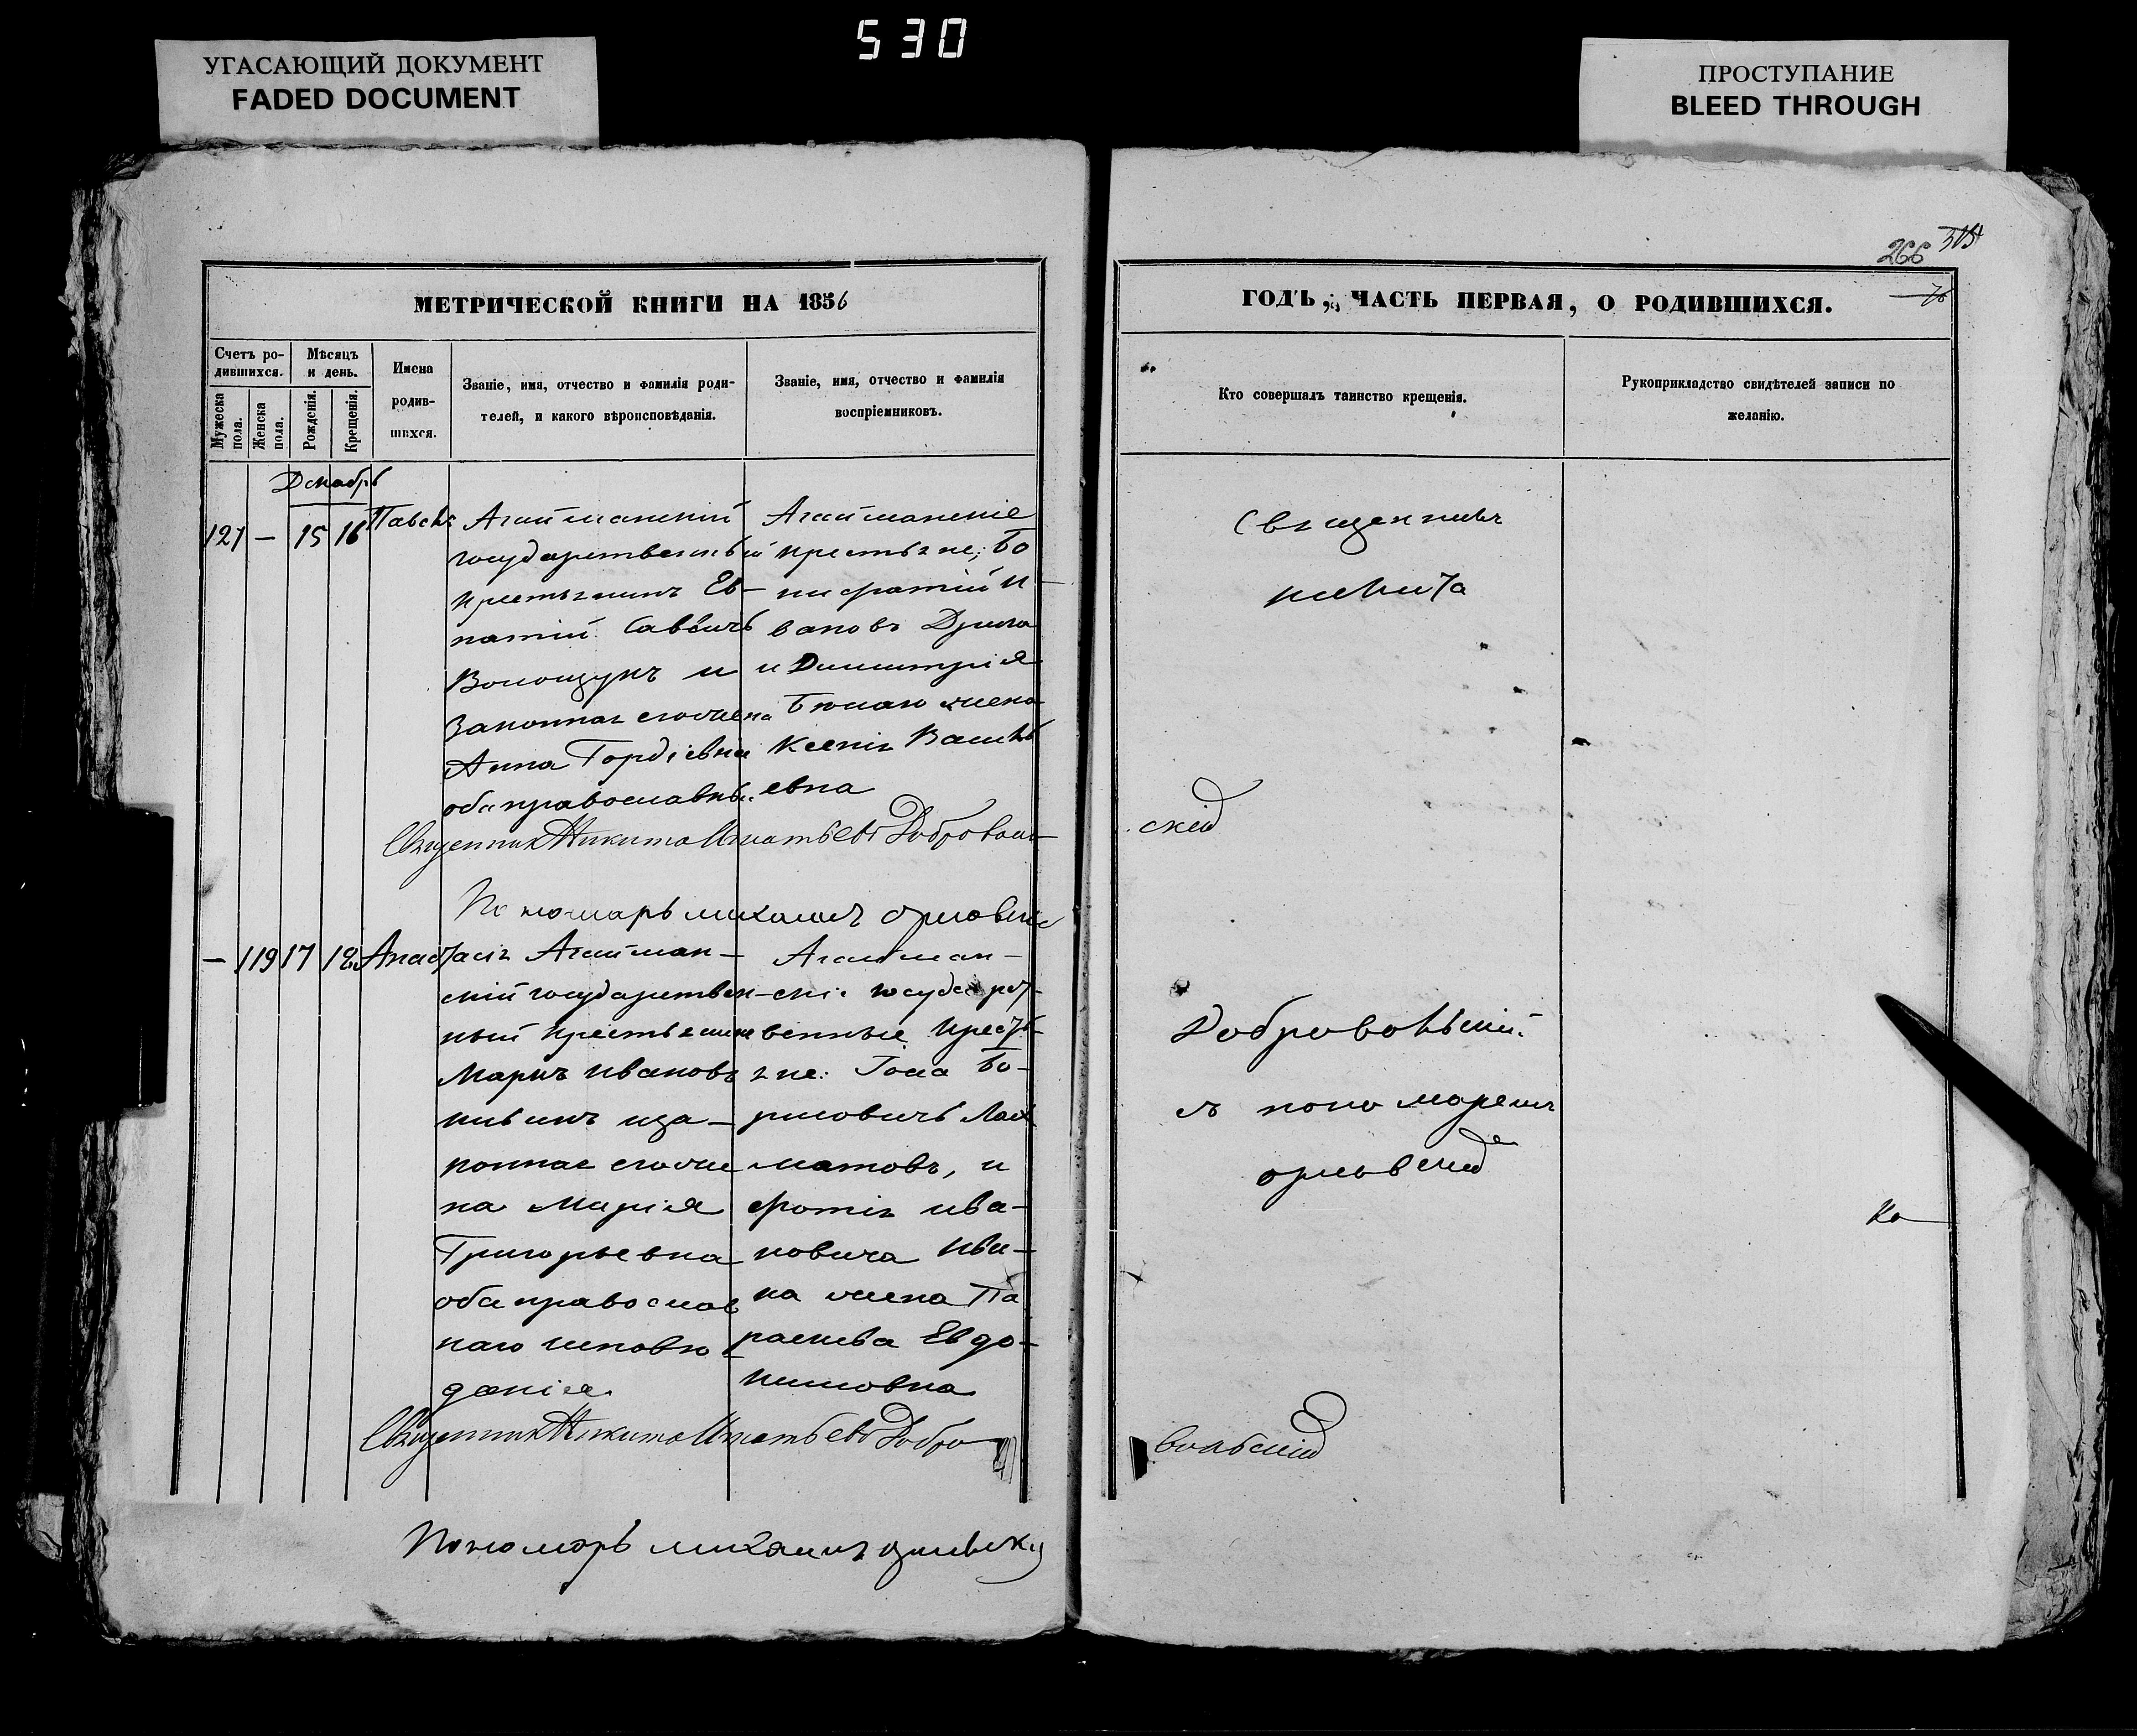 530
УГАСАЮЩИЙ ДОКУМЕНТ
FADED DOCUMENT
ПРОСТУПАНИЕ
BLEED THROUGH
266
МЕТРИЧЕСКОЙ КНИГИ НА 1856
ГОДЪ, ЧАСТЬ ПЕРВАЯ, О РОДИВШИХСЯ.
Счетъ ро-
дившихся.
Мѣсяцъ
и день.
Мужеска
пола.
Женска
пола.
Рожденія.
Крещенія.
Имена
родив-
шихся.
Званіе, имя, отчество и фамилія роди-
телей, и какого вѣроисповѣданія.
Званіе, имя, отчество и фамилія
воспріемниковъ.
Кто совершалъ таинство крещенія.
Рукоприкладство свидѣтелей записи по
желанію.
Декабрь
121 — 15 16 Павелъ
Агайманскій
государственный
крестьянинъ Ев-
патій Саввичъ
Волощукъ и
законная его жена
Анна Гордіевна
оба православные
Агайманскіе
крестьяне; Бо-
нифатій И-
вановъ Дрига
и Димитрія
жена
Ксенія Василь
евна
Священникъ
Никита
Священник Никита Игнатьевъ Доброволь-
скій
Пономарь Михаилъ Орловскій
— 119 17 18 Анастасія
Агайман-
скій государствен-
ный крестьянинъ
Маркъ Ивановъ
за-
конная его же
на Марія
Григорьевна
оба православ
наго исповѣ
данія
Агайман-
скіе государст-
венные кресть-
яне: Іона Бо-
рисовичъ
матовъ, и
Фотія Ива-
новича
на жена Па
раскева Евдо-
кимовна
Добровольскій
съ пономаремъ
Орловскій
Священник Никита Игнатьевъ Добро
вольскій
Ко
Пономарь Михаилъ Орловскій